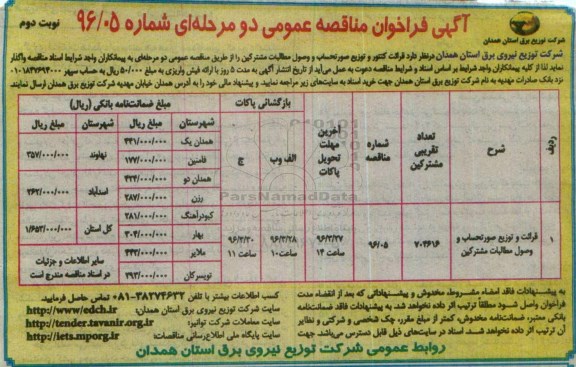 آگهی فراخوان مناقصه عمومی دو مرحله‌ای شماره ۹۶/۰۵
نوبت دوم
شرکت توزیع برق استان همدان
شرکت توزیع نیروی برق استان همدان درنظر دارد قرائت کنتور و توزیع صورتحساب و وصول مطالبات مشترکین را از طریق مناقصه عمومی دو مرحله‌ای به پیمانکاران واجد شرایط اسناد مناقصه واگذار
نماید لذا از کلیه پیمانکاران واجد شرایط بر اساس اسناد و شرایط مناقصه دعوت به عمل می‌آید از تاریخ انتشار آگهی به مدت ۵ روز با ارائه فیش واریزی به مبلغ ۵۰۰/۰۰۰ ریال به حساب سپهر
نزد بانک صادرات مهدیه به نام شرکت توزیع برق استان همدان جهت خرید اسناد به سایت‌های زیر مراجعه نمایید. و پیشنهاد مالی خود را به آدرس همدان خیابان مهدیه شرکت توزیع برق همدان ارسال نمایند.
ردیف
شرح
تعداد تقریبی مشترکین
شماره مناقصه
آخرین مهلت تحویل پاکات
بازگشائی پاکات
الف وب
ج
مبلغ ضمانت‌نامه بانکی (ریال)
شهرستان
مبلغ ریال
شهرستان
مبلغ ریال
۱
قرائت و توزیع صورتحساب و وصول مطالبات مشترکین
۷۰۴۶۱۶
۹۶/۰۵
۹۶/۳/۲۷ ساعت ۱۴
۹۶/۳/۲۸ ساعت ۱۰
۹۶/۳/۳۰ ساعت ۱۱
همدان یک
فامنین ۱۷۷/۰۰۰/۰۰۰
همدان دو
رزن ۲۸۷/۰۰۰/۰۰۰
کبودرآهنگ ۲۸۱/۰۰۰/۰۰۰
بهار ۳۰۴/۰۰۰/۰۰۰
ملایر
تویسرکان ۲۹۳/۰۰۰/۰۰۰
نهاوند ۳۵۷/۰۰۰/۰۰۰
اسدآباد ۲۶۲/۰۰۰/۰۰۰
کل استان ۱/۶۵۳/۰۰۰/۰۰۰
سایر اطلاعات و جزئیات در اسناد مناقصه مندرج است
ParsNamadData
به پیشنهادات فاقد امضاء مشروط، مخدوش و پیشنهاداتی که بعد از انقضاء مدت
فراخوان واصل شود مطلقاً ترتیب اثر داده نخواهد شد. به پیشنهادات فاقد ضمانت‌نامه
بانکی معتبر، ضمانت‌نامه مخدوش، کمتر از مبلغ مقرر، چک شخصی و شرکتی و نظایر
آن ترتیب اثر داده نخواهد شد. اسناد در سایت‌های ذیل قابل دسترس می‌باشد. جهت
کسب اطلاعات بیشتر با تلفن ۳۸۲۷۴۶۳۲-۰۸۱ تماس حاصل فرمایید.
سایت شرکت توزیع نیروی برق استان همدان: http://www/edch.ir
سایت معاملات شرکت توانیر: http://tender.tavanir.org.ir
سایت پایگاه ملی اطلاع‌رسانی مناقصات: http://iets.mporg.ir
روابط عمومی شرکت توزیع نیروی برق استان همدان